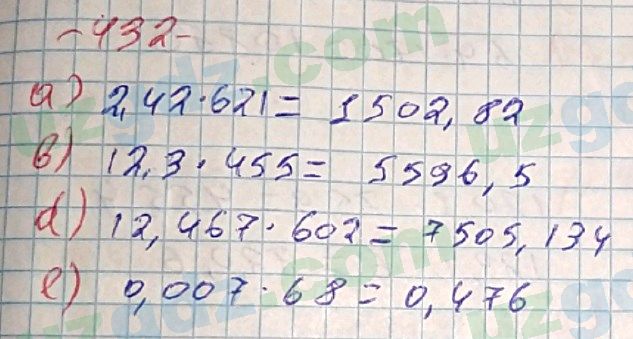 -432-
a) 2,42·621= 1502,82
b) 12,3·455= 5596,5
d) 12,467·602=7505,134
e) 0,007·68=0,476
uzgdz.com